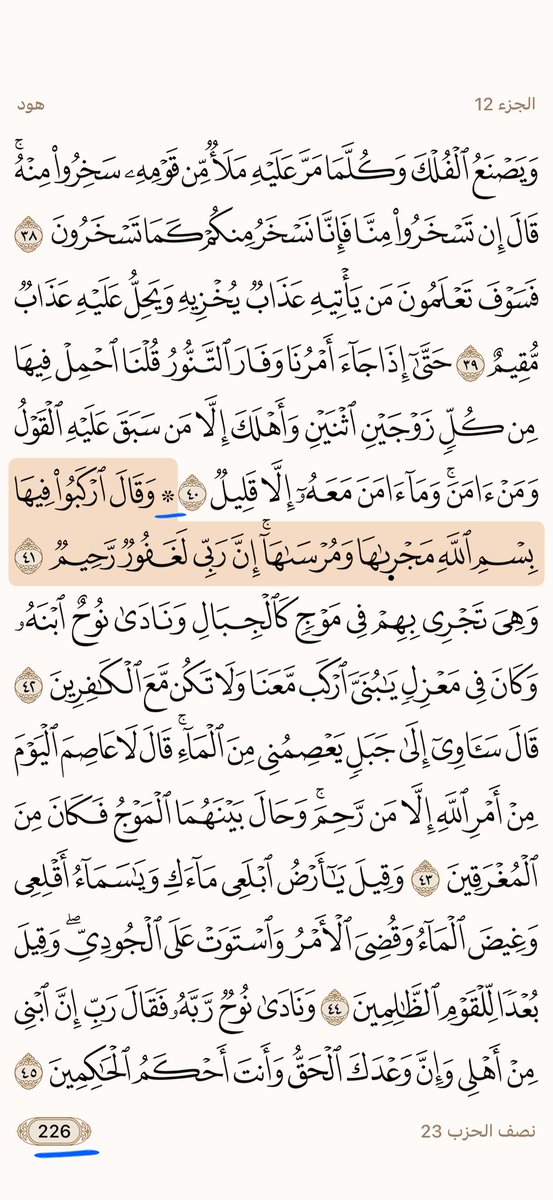 الجزء 12
هود
وَيَصۡنَعُ ٱلۡفُلۡكَ وَكُلَّمَا مَرَّ عَلَيۡهِ مَلَأٞ مِّن قَوۡمِهِۦ سَخِرُواْ مِنۡهُۚ
قَالَ إِن تَسۡخَرُواْ مِنَّا فَإِنَّا نَسۡخَرُ مِنكُمۡ كَمَا تَسۡخَرُونَ ٣٨
فَسَوۡفَ تَعۡلَمُونَ مَن يَأۡتِيهِ عَذَابٞ يُخۡزِيهِ وَيَحِلُّ عَلَيۡهِ عَذَابٞ
مُّقِيمٌ ٣٩ حَتَّىٰٓ إِذَا جَآءَ أَمۡرُنَا وَفَارَ ٱلتَّنُّورُ قُلۡنَا ٱحۡمِلۡ فِيهَا
مِن كُلّٖ زَوۡجَيۡنِ ٱثۡنَيۡنِ وَأَهۡلَكَ إِلَّا مَن سَبَقَ عَلَيۡهِ ٱلۡقَوۡلُ
وَمَنۡ ءَامَنَۚ وَمَآ ءَامَنَ مَعَهُۥٓ إِلَّا قَلِيلٞ ٤٠ ۞ وَقَالَ ٱرۡكَبُواْ فِيهَا
بِسۡمِ ٱللَّهِ مَجۡرٜىٰهَا وَمُرۡسَىٰهَآۚ إِنَّ رَبِّي لَغَفُورٞ رَّحِيمٞ ٤١
وَهِيَ تَجۡرِي بِهِمۡ فِي مَوۡجٖ كَٱلۡجِبَالِ وَنَادَىٰ نُوحٌ ٱبۡنَهُۥ
وَكَانَ فِي مَعۡزِلٖ يَٰبُنَيَّ ٱرۡكَب مَّعَنَا وَلَا تَكُن مَّعَ ٱلۡكَٰفِرِينَ ٤٢
قَالَ سَـَٔاوِيٓ إِلَىٰ جَبَلٖ يَعۡصِمُنِي مِنَ ٱلۡمَآءِۚ قَالَ لَا عَاصِمَ ٱلۡيَوۡمَ
مِنۡ أَمۡرِ ٱللَّهِ إِلَّا مَن رَّحِمَۚ وَحَالَ بَيۡنَهُمَا ٱلۡمَوۡجُ فَكَانَ مِنَ
ٱلۡمُغۡرَقِينَ ٤٣ وَقِيلَ يَٰٓأَرۡضُ ٱبۡلَعِي مَآءَكِ وَيَٰسَمَآءُ أَقۡلِعِي
وَغِيضَ ٱلۡمَآءُ وَقُضِيَ ٱلۡأَمۡرُ وَٱسۡتَوَتۡ عَلَى ٱلۡجُودِيِّۖ وَقِيلَ
بُعۡدٗا لِّلۡقَوۡمِ ٱلظَّٰلِمِينَ ٤٤ وَنَادَىٰ نُوحٞ رَّبَّهُۥ فَقَالَ رَبِّ إِنَّ ٱبۡنِي
مِنۡ أَهۡلِي وَإِنَّ وَعۡدَكَ ٱلۡحَقُّ وَأَنتَ أَحۡكَمُ ٱلۡحَٰكِمِينَ ٤٥
نصف الحزب 23
226